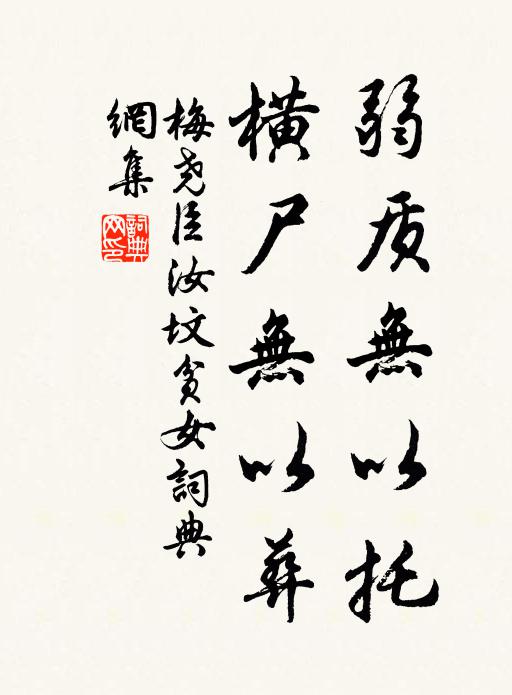 弱质無以托
橫尸無以葬
梅尧臣汝坟贫女詞典
網集
詞典
网印